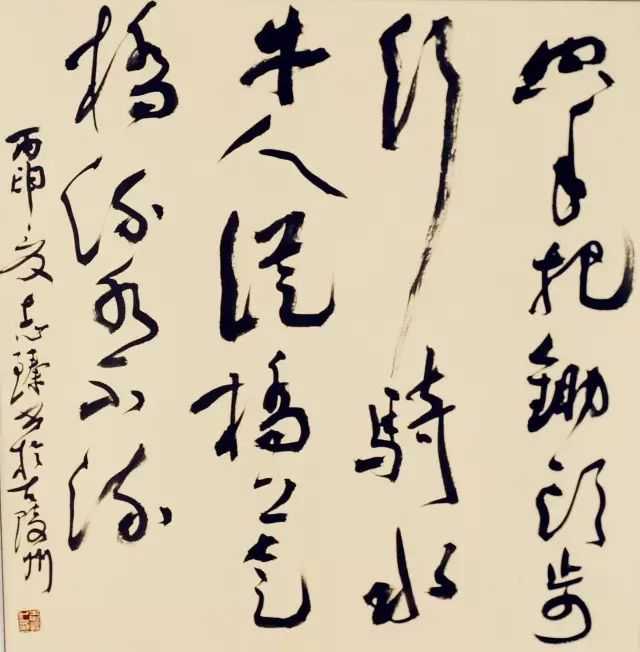 空手把鋤頭步
行騎水
牛人從橋上走
橋流水不流
丙申夏志臻书於古陵州